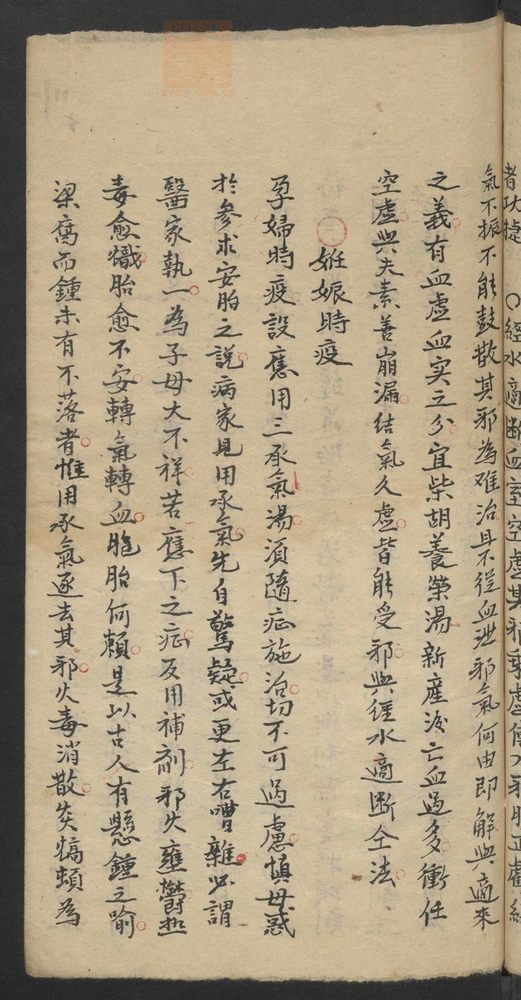 者功捷 〇經水適斷血室空虛其邪乘虛傳入邪勝正虧經
氣不振不能鼓散其邪為难治且不從血泄邪氣何由即解與適來
之義有血虛血実之分宜柴胡養榮湯新産後亡血過多衝任
空虛與夫素善崩漏結氣久虛皆能受邪與經水適断仝法
三 姙娠時疫
孕婦時疫設應用三承氣湯須隨症施治切不可過慮慎毋惑
扵參求安胎之説病家見用承氣先自驚疑或更左右嘈雜必謂
醫家執一為子母大不祥若應下之症反用補劑邪火壅鬱热
毒愈熾胎愈不安轉氣轉血胞胎何頼是以古人有懸鍾之喻
梁腐而鍾未有不落者惟用承氣逐去其邪火毒消散炎熇頓為